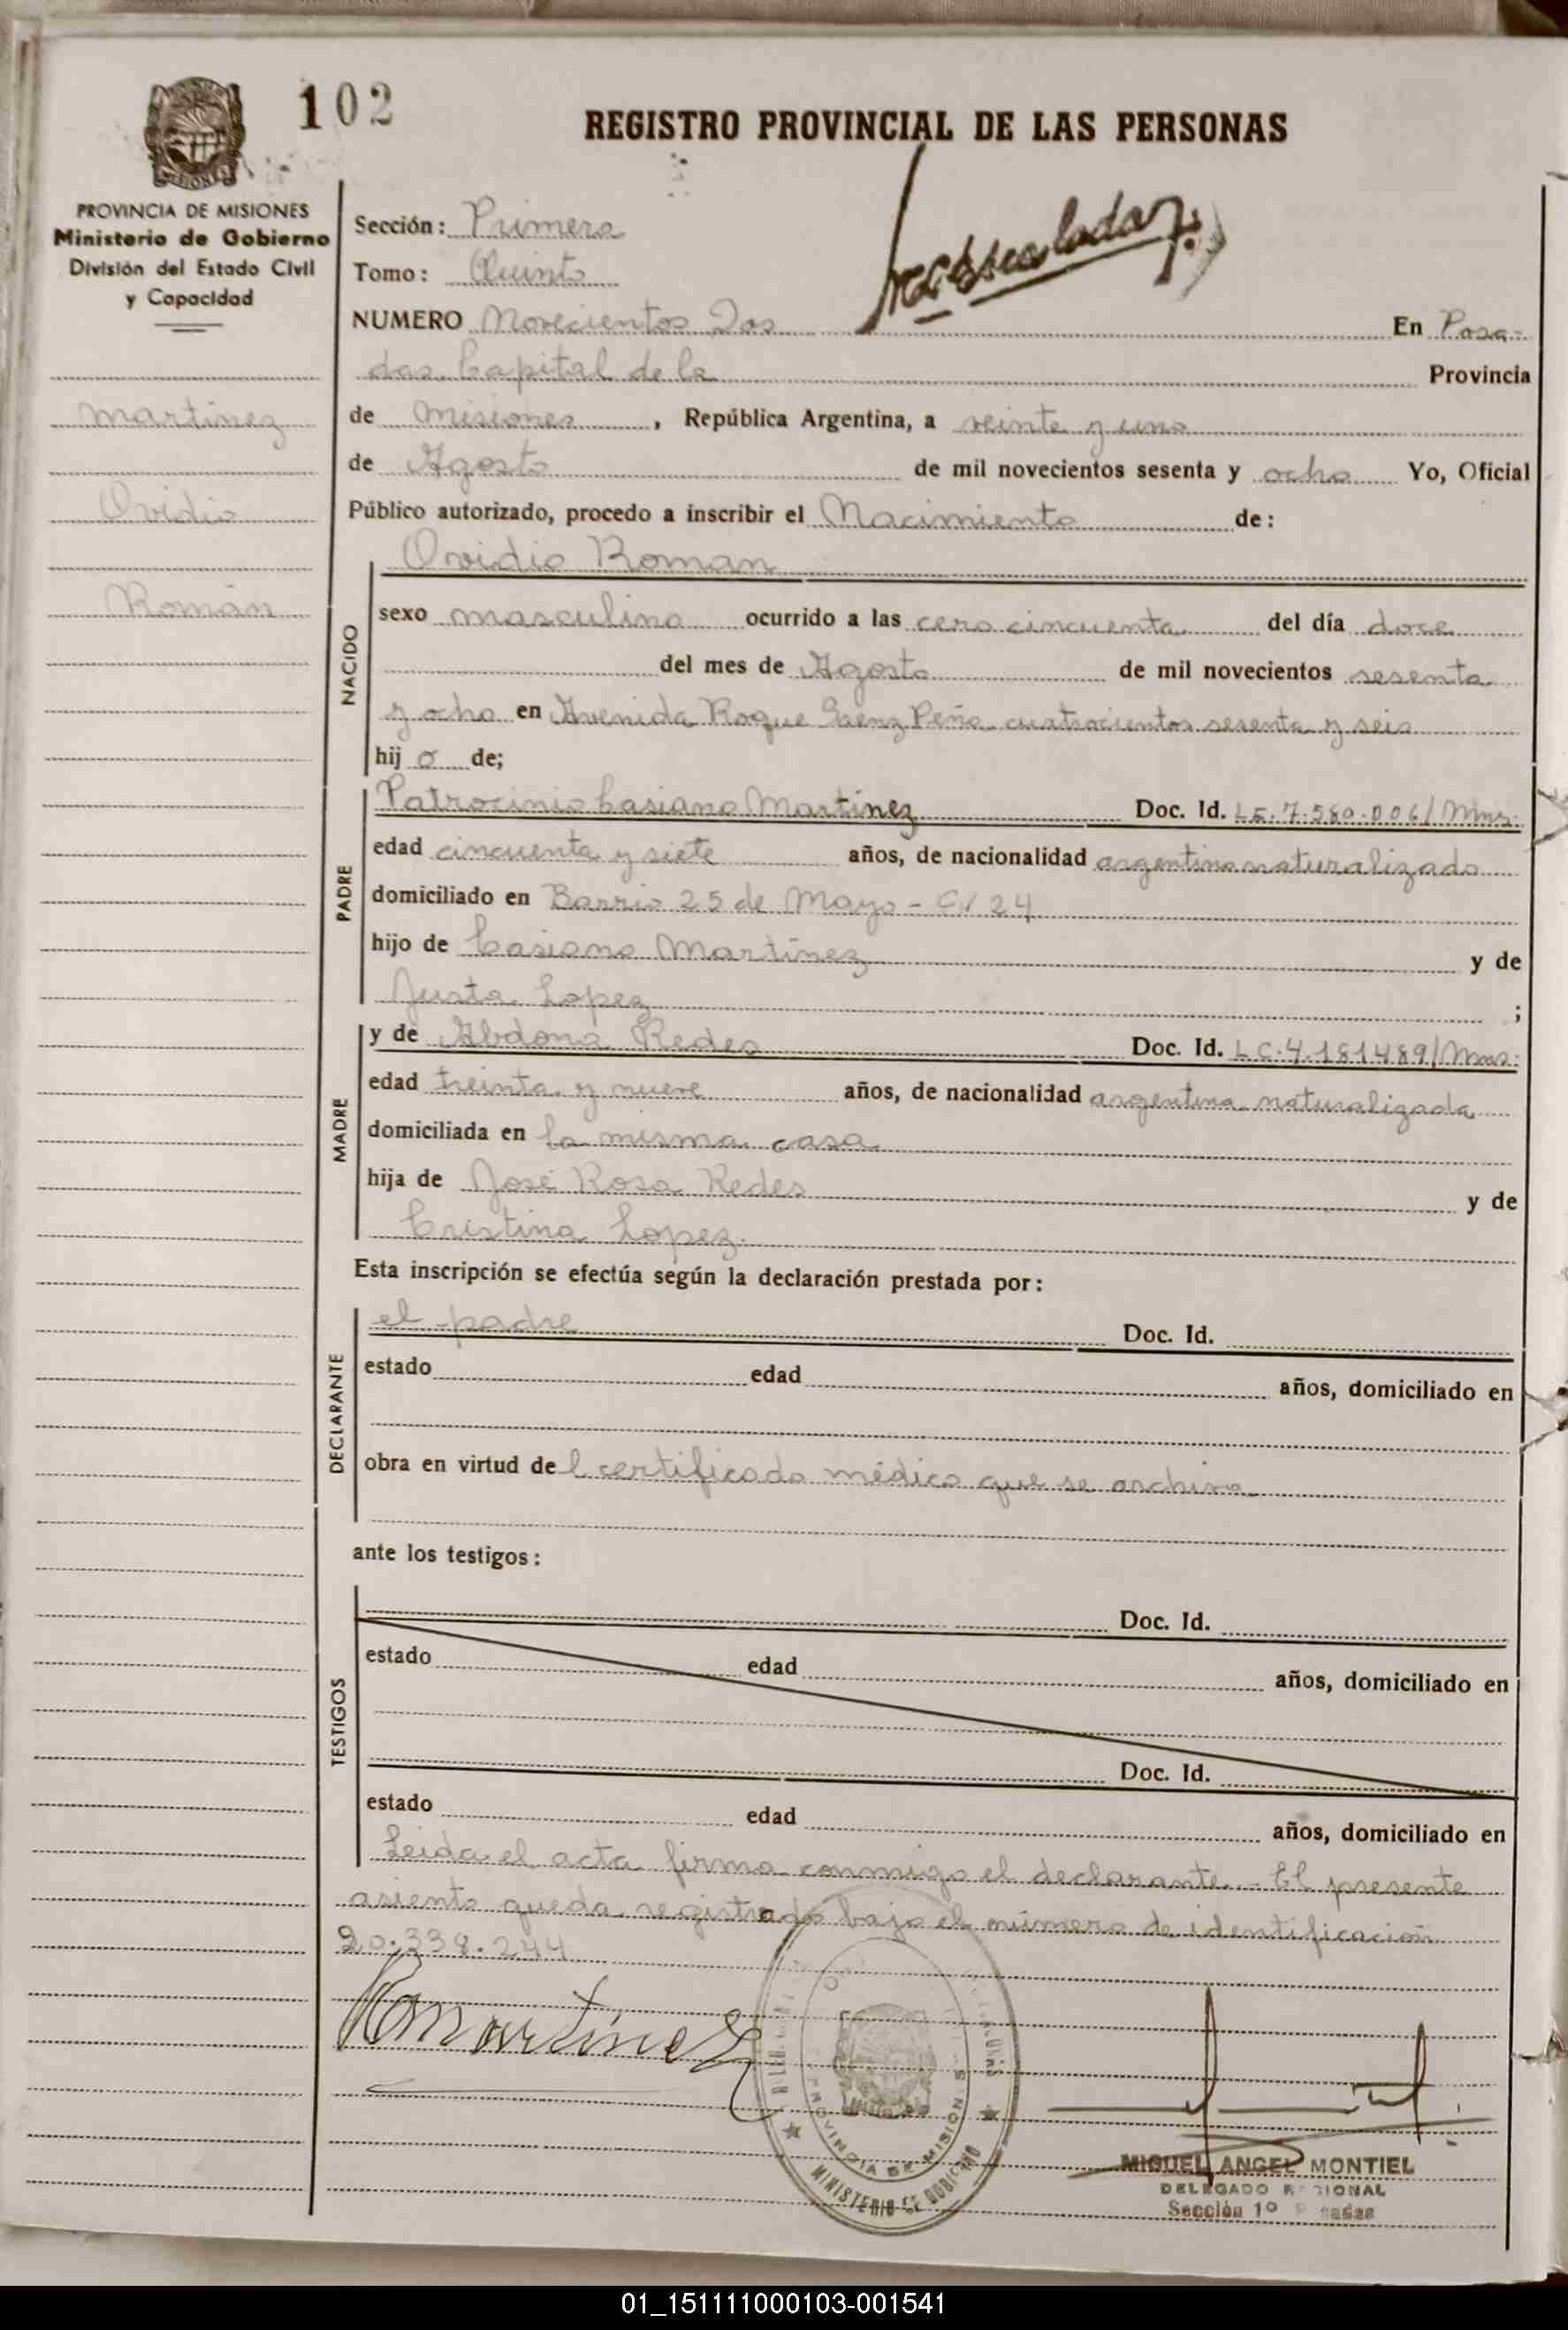 102
REGISTRO PROVINCIAL DE LAS PERSONAS
PROVINCIA DE MISIONES
Ministerio de Gobierno
División del Estado Civil
y Capacidad
Martínez
Ovidio
Román
Sección: Primera
Tomo: Quinto
NUMERO Novecientos Dos En Posa-
das, Capital de la Provincia
de Misiones, República Argentina, a veinte y uno
de Agosto de mil novecientos sesenta y ocho Yo, Oficial
Público autorizado, procedo a inscribir el Nacimiento de:
NACIDO
Ovidio Roman
sexo masculino ocurrido a las cero cincuenta del día doce
del mes de Agosto de mil novecientos sesenta
y ocho en Avenida Roque Saenz Peña cuatrocientos sesenta y seis
hij o de;
PADRE
Patrocinio Casiano Martínez Doc. Id. LE. 7.580.006/Mns.
edad cincuenta y siete años, de nacionalidad argentino naturalizado
domiciliado en Barrio 25 de Mayo - C/ 24
hijo de Casiano Martínez y de
Justa Lopez ;
MADRE
y de Abdona Redes Doc. Id. LC. 4.181489/Mns.
edad treinta y nueve años, de nacionalidad argentina naturalizada
domiciliada en la misma casa
hija de José Rosa Redes y de
Cristina Lopez.
Esta inscripción se efectúa según la declaración prestada por:
DECLARANTE
el padre Doc. Id.
estado edad años, domiciliado en
obra en virtud del certificado médico que se archiva
ante los testigos:
TESTIGOS
Doc. Id.
estado edad años, domiciliado en
Doc. Id.
estado edad años, domiciliado en
Leida el acta firma conmigo el declarante.- El presente
asiento queda registrado bajo el número de identificación
20.338.244
Martinez
PROVINCIA DE MISIONES
MINISTERIO DE GOBIERNO
MIGUEL ANGEL MONTIEL
DELEGADO REGIONAL
Sección 1º Posadas
01_151111000103-001541